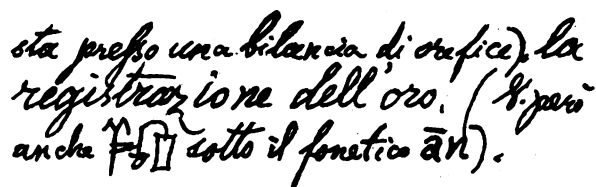 sta presso una bilancia di orefice), la
registrazione dell'oro. (V. però
anche sotto il fonetico ān).